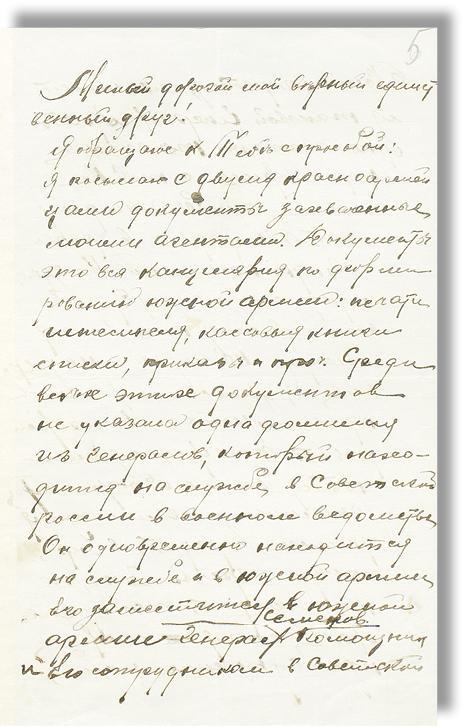 5
Милый дорогой мой верный единст
венный друг!
Я обращаюсь к Тебе с просьбой:
Я посылаю с двумя красноармей
цами документы захваченные
моими агентами. Документы
это вся канцелярия по форми
рованию южной армии: печати
штемпеля, кассовыя книги
списки, приказы и проч. Среди
всех этих документов
не указана одна фамилия
из генералов, который нахо-
дится на службе в Советской
россии в военном ведомстве
Он одновременно находится
на службе и в южной армии
его заместитель в южной
Семенов
армии генерал
и его сотрудникам в Советской